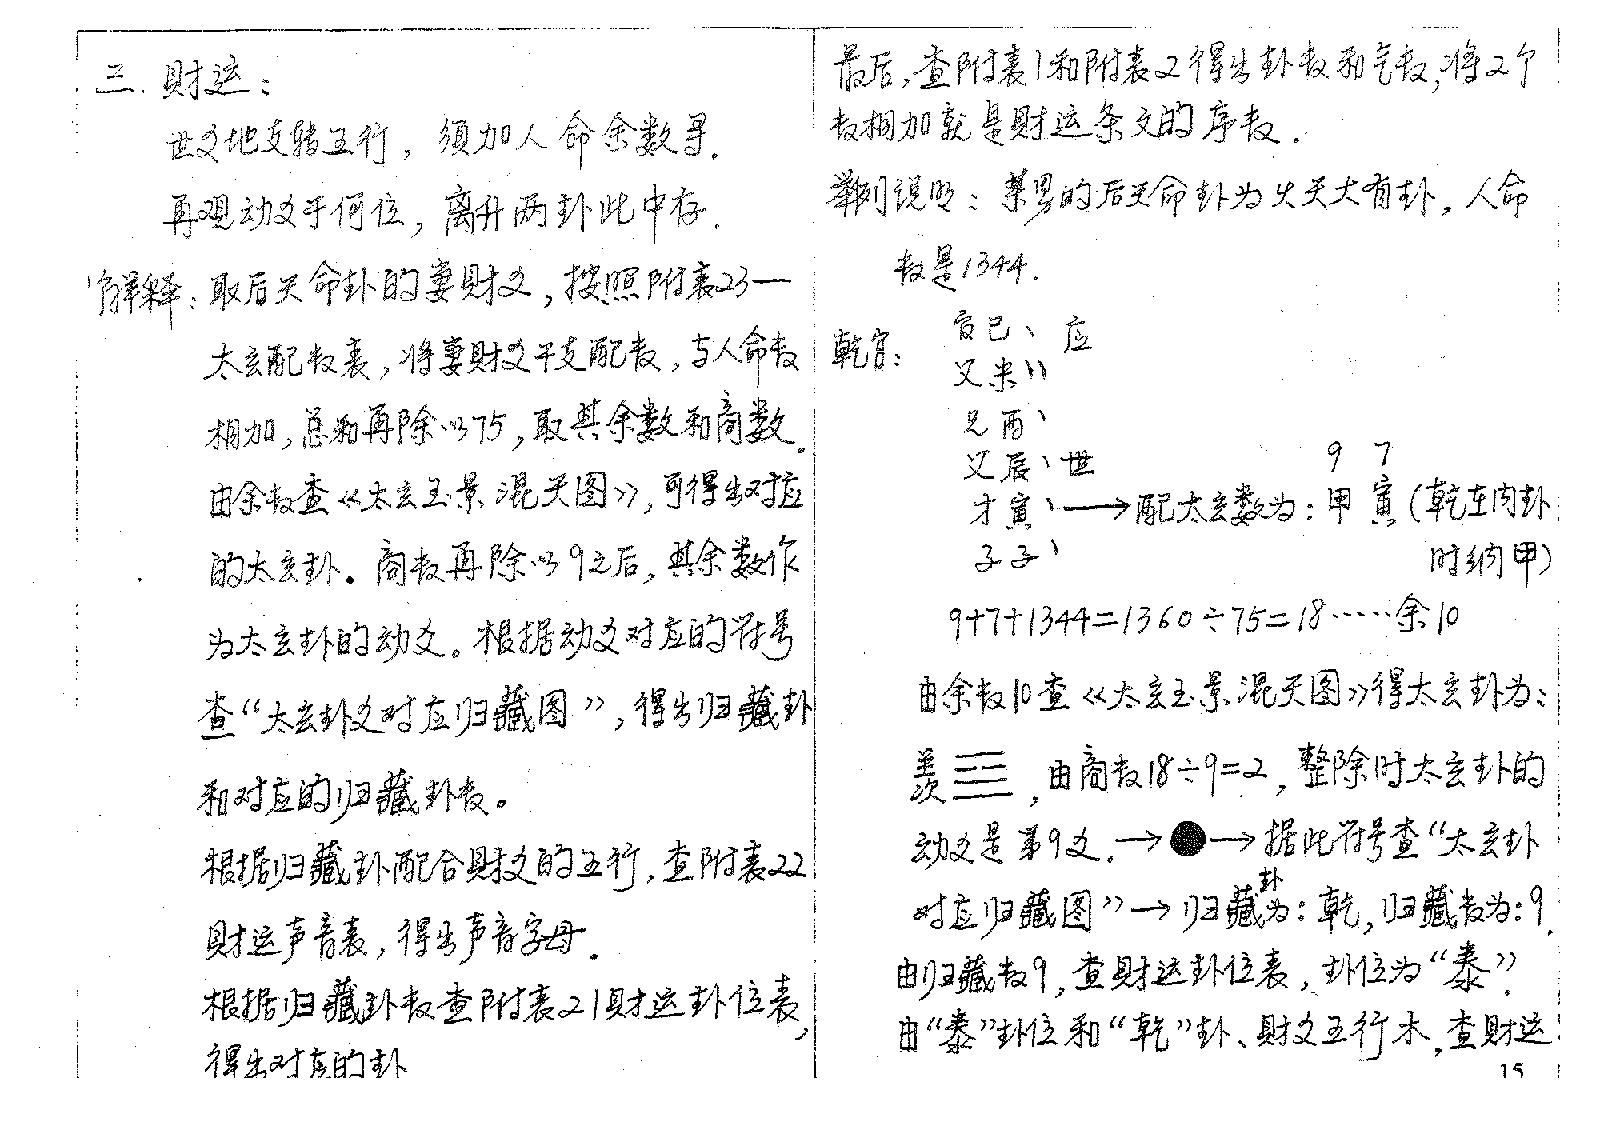 三. 财运：
世爻地支转五行，须加人命余数寻.
再观动爻于何位，离升两卦此中存.
解释：取后天命卦的妻财爻，按照附表23一
太玄配数表，将妻财爻干支配数，与人命数
相加，总和再除以75，取其余数和商数。
由余数查《太玄玉景混天图》，可得出对应
的太玄卦。商数再除以9之后，其余数作
为太玄卦的动爻。根据动爻对应的符号
查“太玄卦爻对应归藏图”，得出归藏卦
和对应的归藏卦数。
根据归藏卦配合财爻的五行，查附表22
财运声音表，得出声音字母.
根据归藏卦数查附表21财运卦位表，
得出对应的卦
最后，查附表1和附表2得出卦数和气数，将2个
数相加就是财运条文的序数.
举例说明：某男的后天命卦为火天大有卦，人命
数是1344.
乾宫：
官巳、 应
父未〃
兄酉、
父辰、世
9 7
才寅、→配太玄数为：甲 寅（乾在内卦
子子、 时纳甲）
9+7+1344=1360÷75=18……余10
由余数10查《太玄玉景混天图》得太玄卦为：
羡次，由商数18÷9=2，整除时太玄卦的
动爻是第9爻.→●→据此符号查“太玄卦
对应归藏图”→归藏卦为：乾，归藏数为：9.
由归藏数9，查财运卦位表，卦位为“泰”.
由“泰”卦位和“乾”卦、财爻五行木，查财运
15